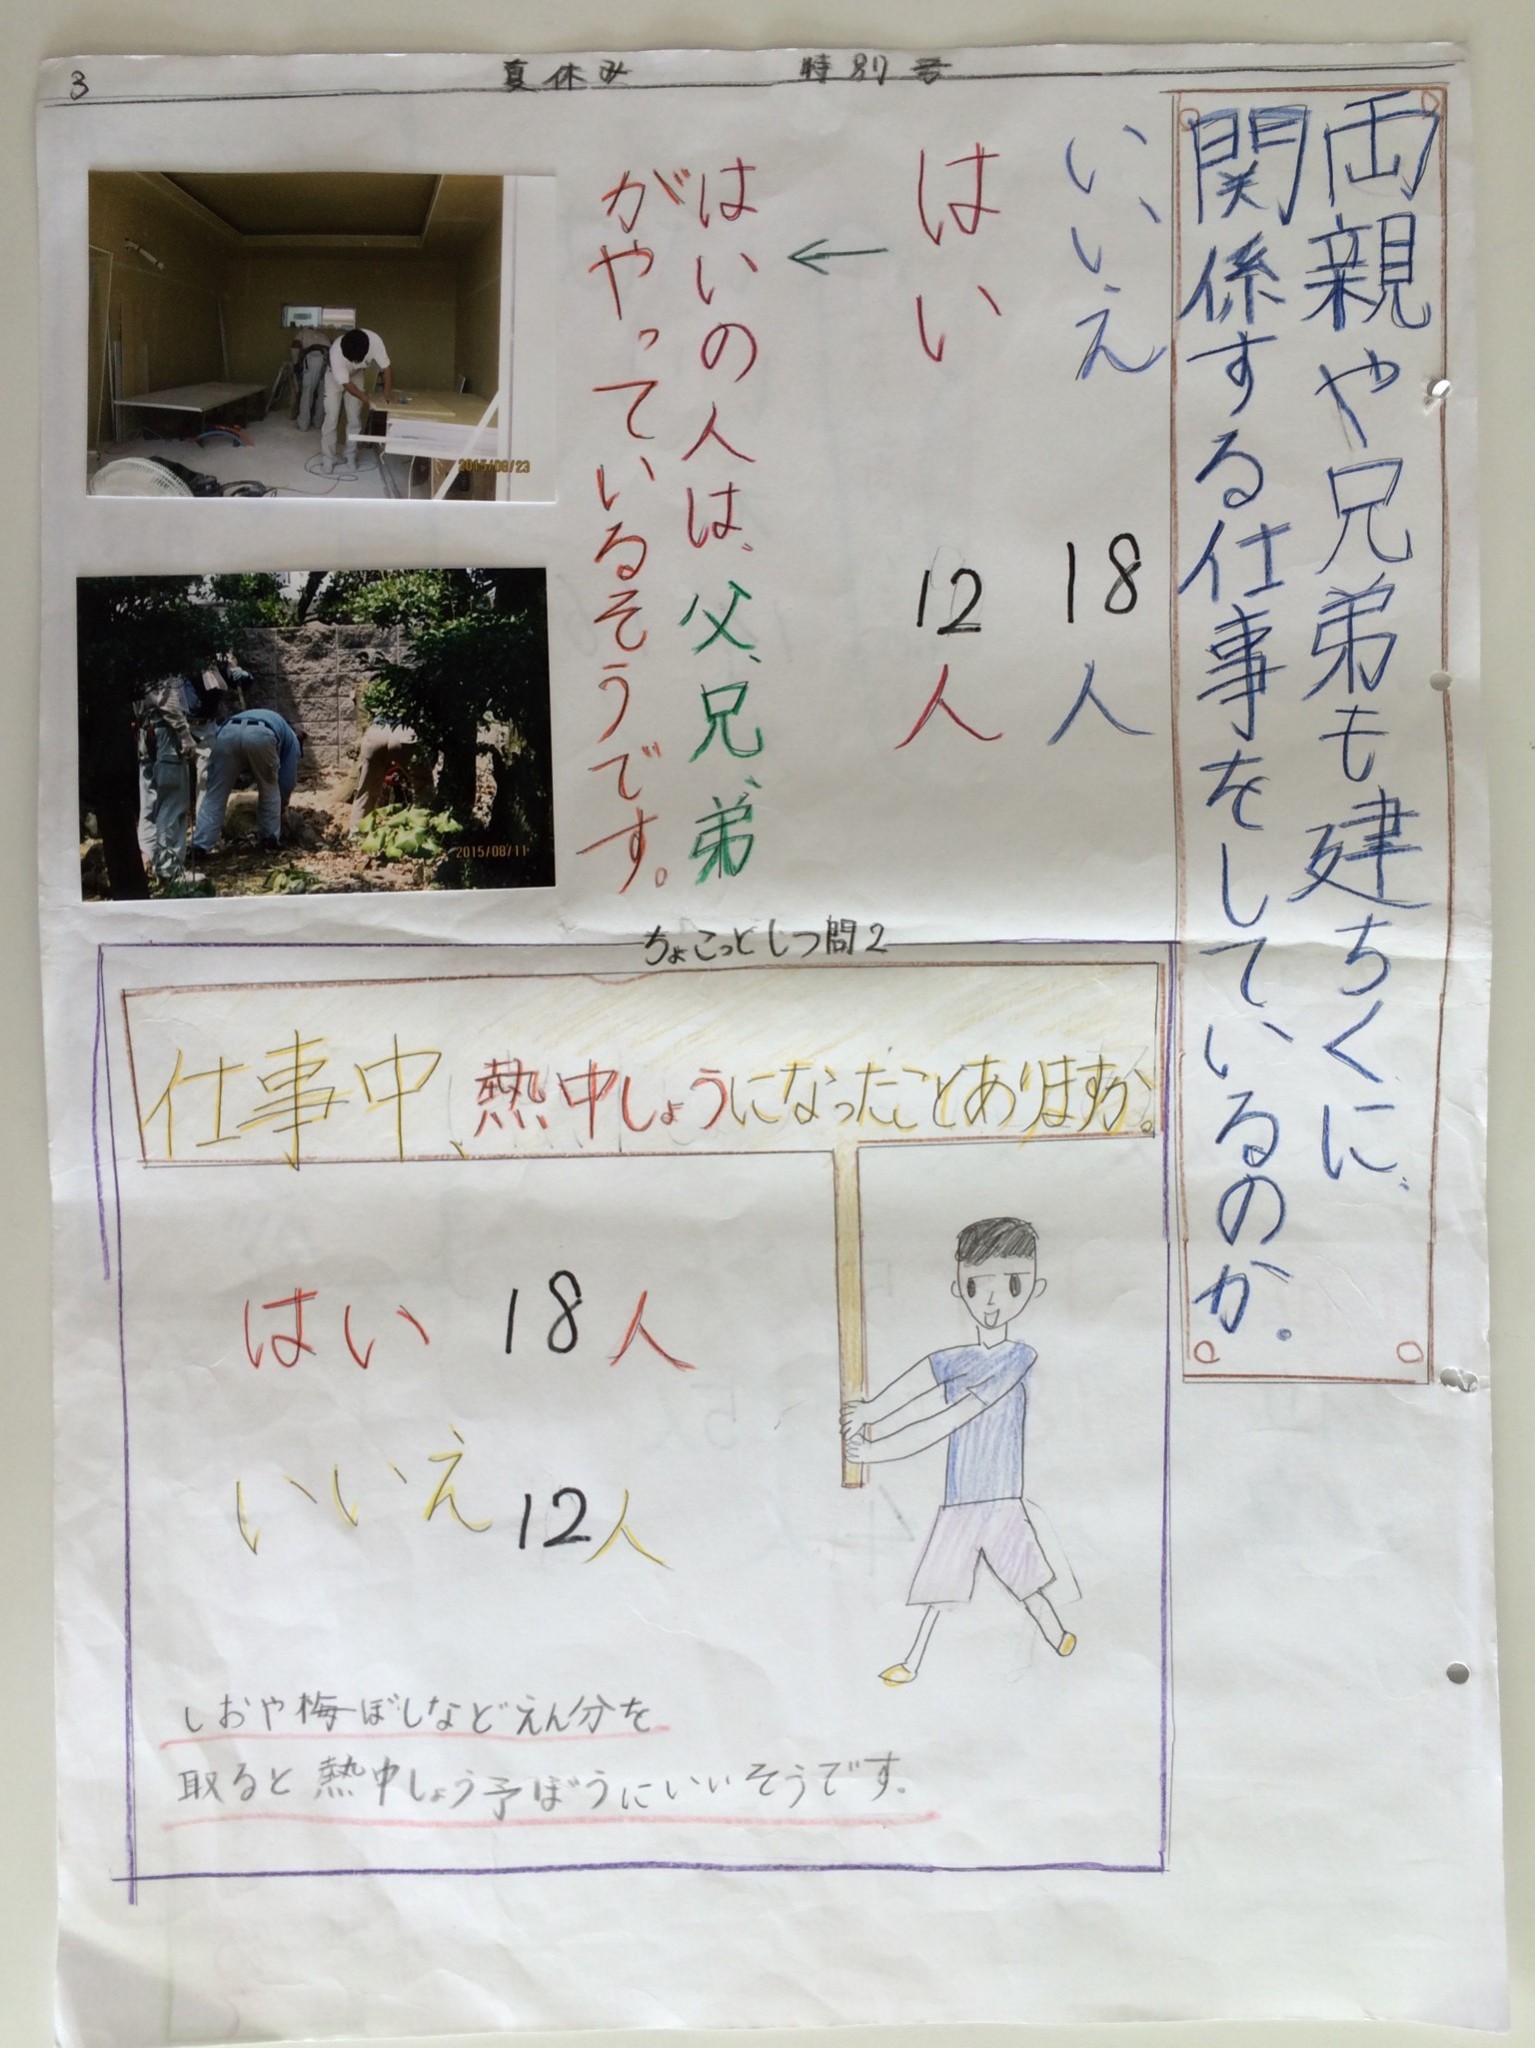 3
夏休み 特別号
両親や兄弟も建ちくに、
関係する仕事をしているのか。
いいえ 18人
はい 12人
はいの人は、父、兄、弟
がやっているそうです。
2015/08/23
2015/08/11
ちょこっとしつ問2
仕事中、熱中しょうになったことありますか。
はい 18人
いいえ 12人
しおや梅ぼしなどえん分を
取ると熱中しょう予ぼうにいいそうです。